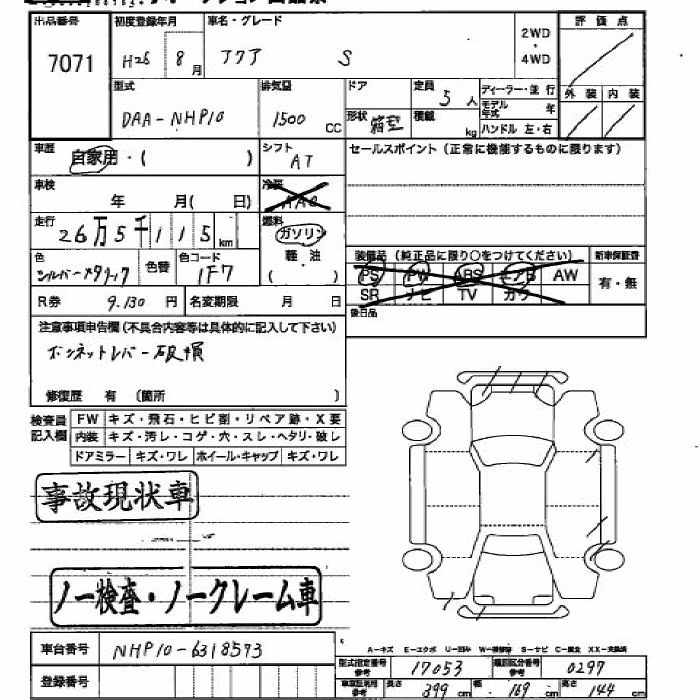 出品番号 初度登録年月 車名・グレード 2WD・4WD 評価点
7071 H26 8月 アクア S
外装 内装
型式 排気量 ドア 定員 5人 ディーラー・並行
DAA-NHP10 1500 CC 形状 箱型 積載 kg モデル年式 年
ハンドル 左・右
車歴 自家用・( ) シフト AT セールスポイント(正常に機能するものに限ります)
車検 年 月( 日) 冷房 AAC
走行 26万5千115km 燃料 ガソリン 軽油 ( )
色 シルバーメタリック 色替 色コード 1F7
装備品(純正品に限り○をつけてください) 新車保証書
PS PW ABS エアB AW 有・無
SR ナビ TV カワ
R券 9.130円 名変期限 月 日 後日品
注意事項申告欄(不具合内容等は具体的に記入して下さい)
ボンネットレバー破損
修復歴 有 (箇所 )
検査員記入欄 FW キズ・飛石・ヒビ割・リペア跡・X要
内装 キズ・汚レ・コゲ・穴・スレ・ヘタリ・破レ
ドアミラー キズ・ワレ ホイール・キャップ キズ・ワレ
事故現状車
ノー検査・ノークレーム車
車台番号 NHP10-6318573
A-キズ E-エクボ U-凹み W-補修跡 S-サビ C-腐食 XX-交換済
登録番号
型式指定番号参考 17053 類別区分番号参考 0297
車庫証明用参考 長さ 399cm 幅 169cm 高さ 144cm